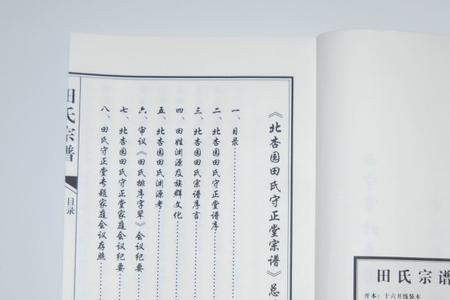 《北杏园田氏守正堂宗谱》总
一、目录
二、北杏园田氏守正堂谱序
三、北杏园田氏宗谱序言
四、田姓渊源及族群文化
五、北杏园田氏渊源考
六、审议《田氏排序字辈》会议纪要
七、北杏园田氏守正堂家庭会议纪要
八、田氏守正堂专题家庭会议存照
田氏宗谱
目录
田氏宗谱
开本：十六开线装本